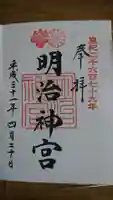 皇紀二千六百七十九年
奉拝
明治神宮
平成三十一年 四月二十日